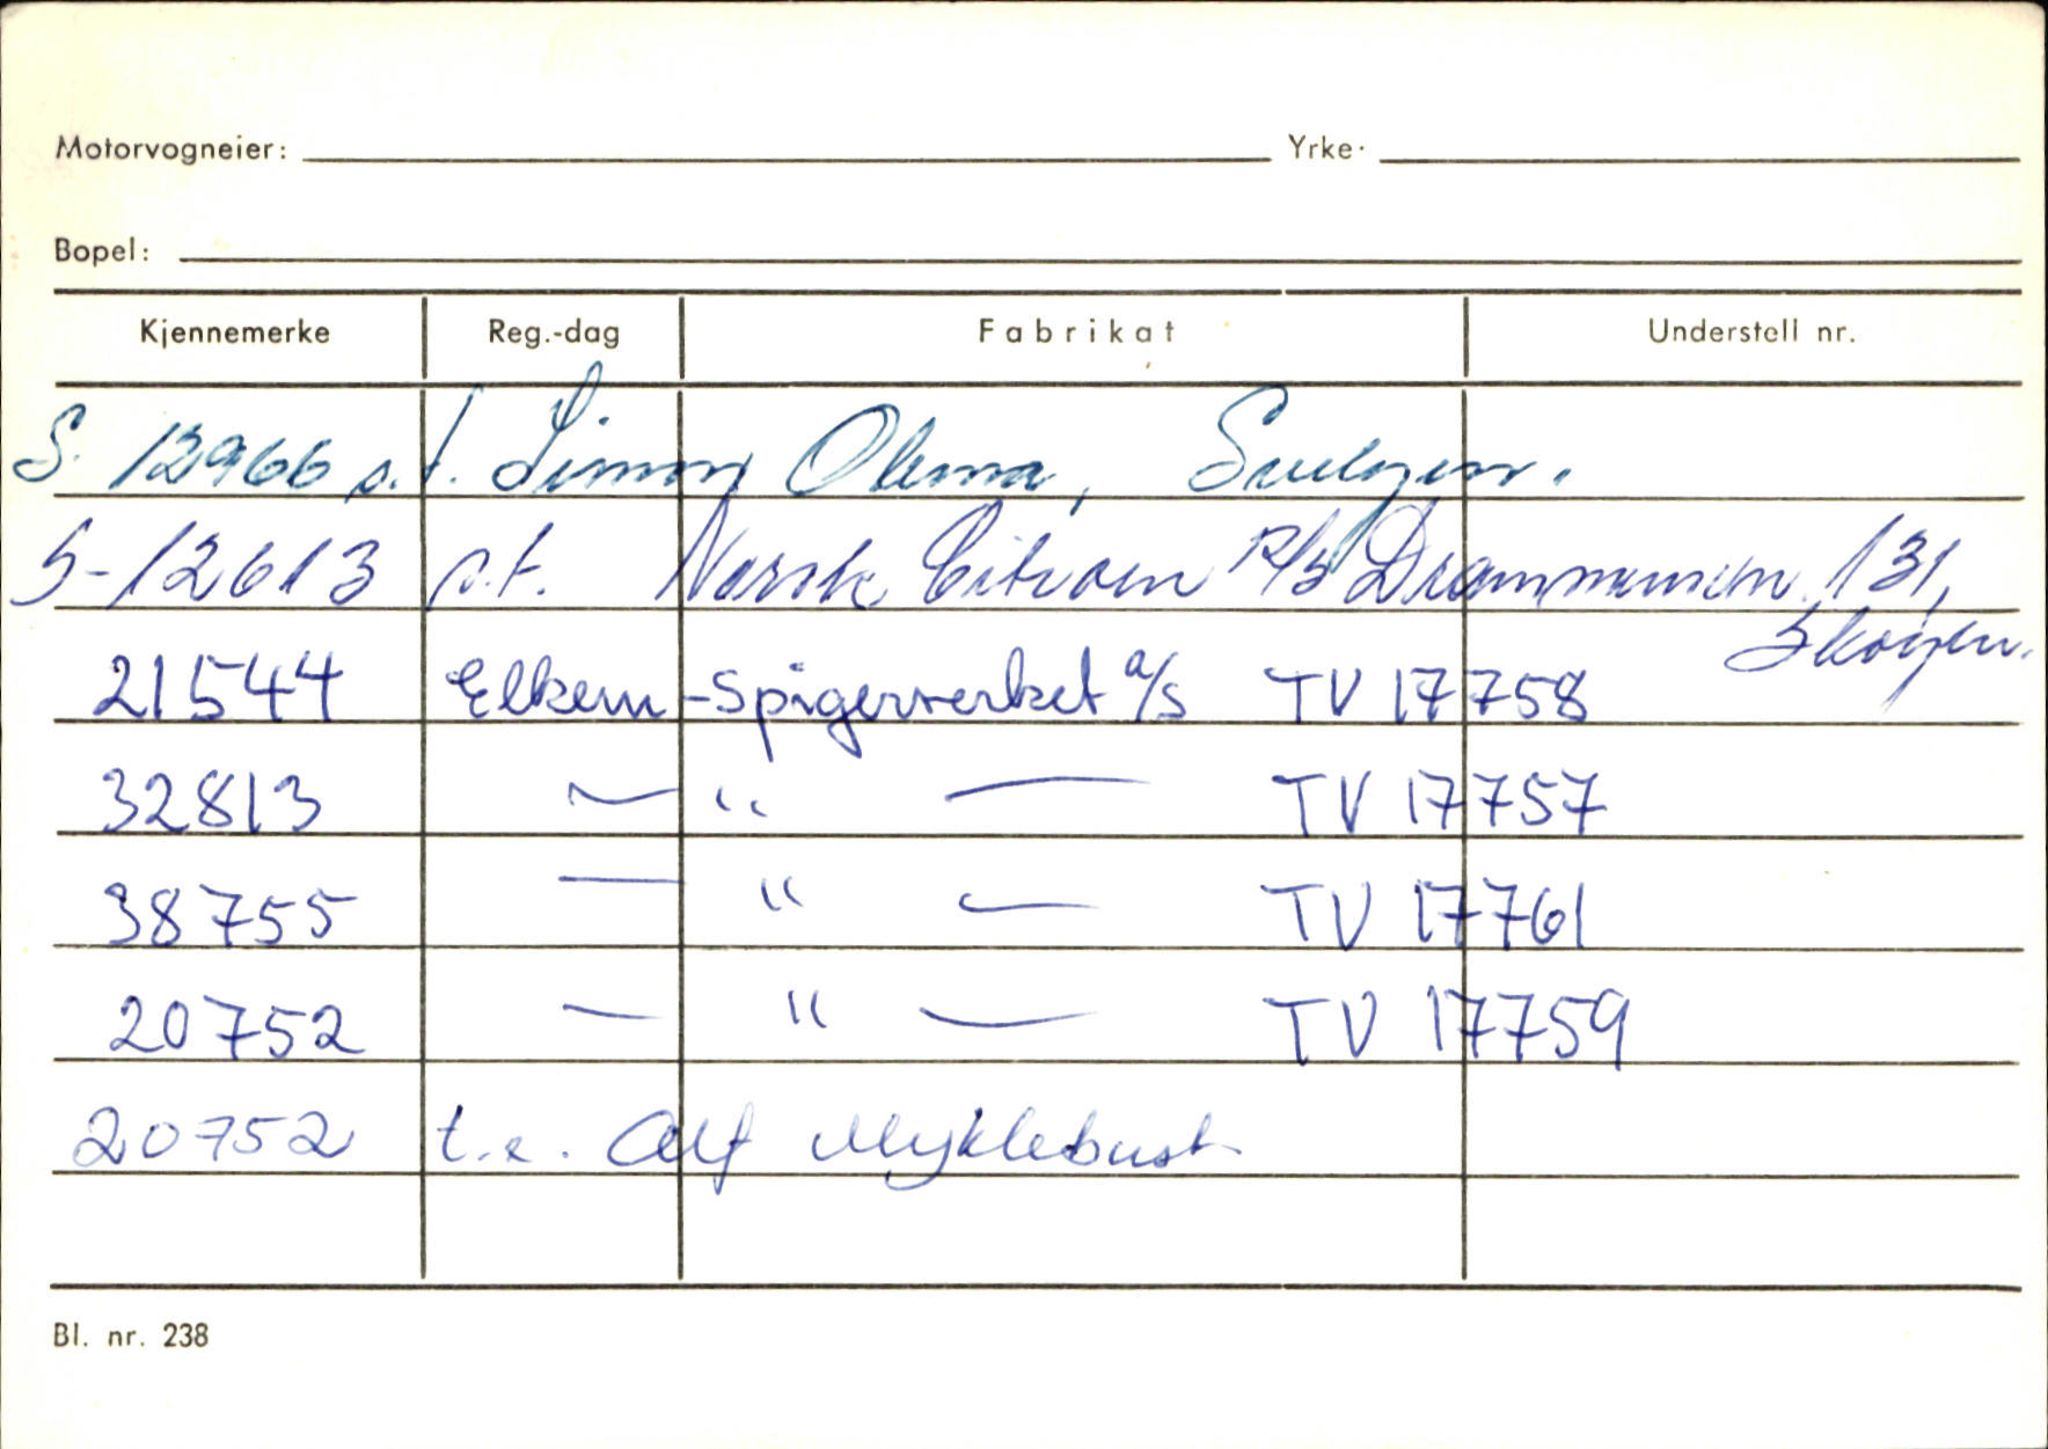 Motorvogneier: Yrke.
Bopel:
Kjennemerke Reg.-dag Fabrikat Understell nr.
S. 12966 s.t.
S-12613 s.t. Norsk Citroen A/S Drammensvn. 131,
Skøyen.
21544 Elkem-Spigerverket a/s TV 17758
32813 — " — TV 17757
38755 — " — TV 17761
20752 — " — TV 17759
20752 t.e. Alf Myklebust
Bl. nr. 238